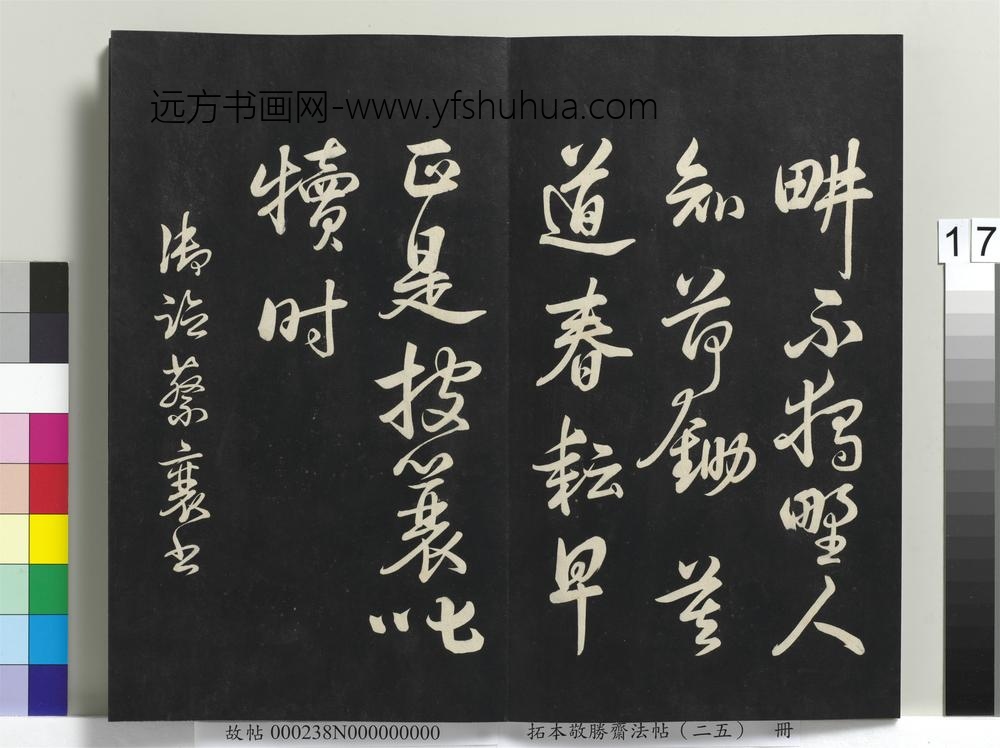 远方书画网-www.yfshuhua.com
畊不獨野人
知荷鋤莫
道春耘早
正是披簑叱
犢时
蔡襄书
17
故帖 000238N000000000
拓本敬勝齋法帖（二五） 冊